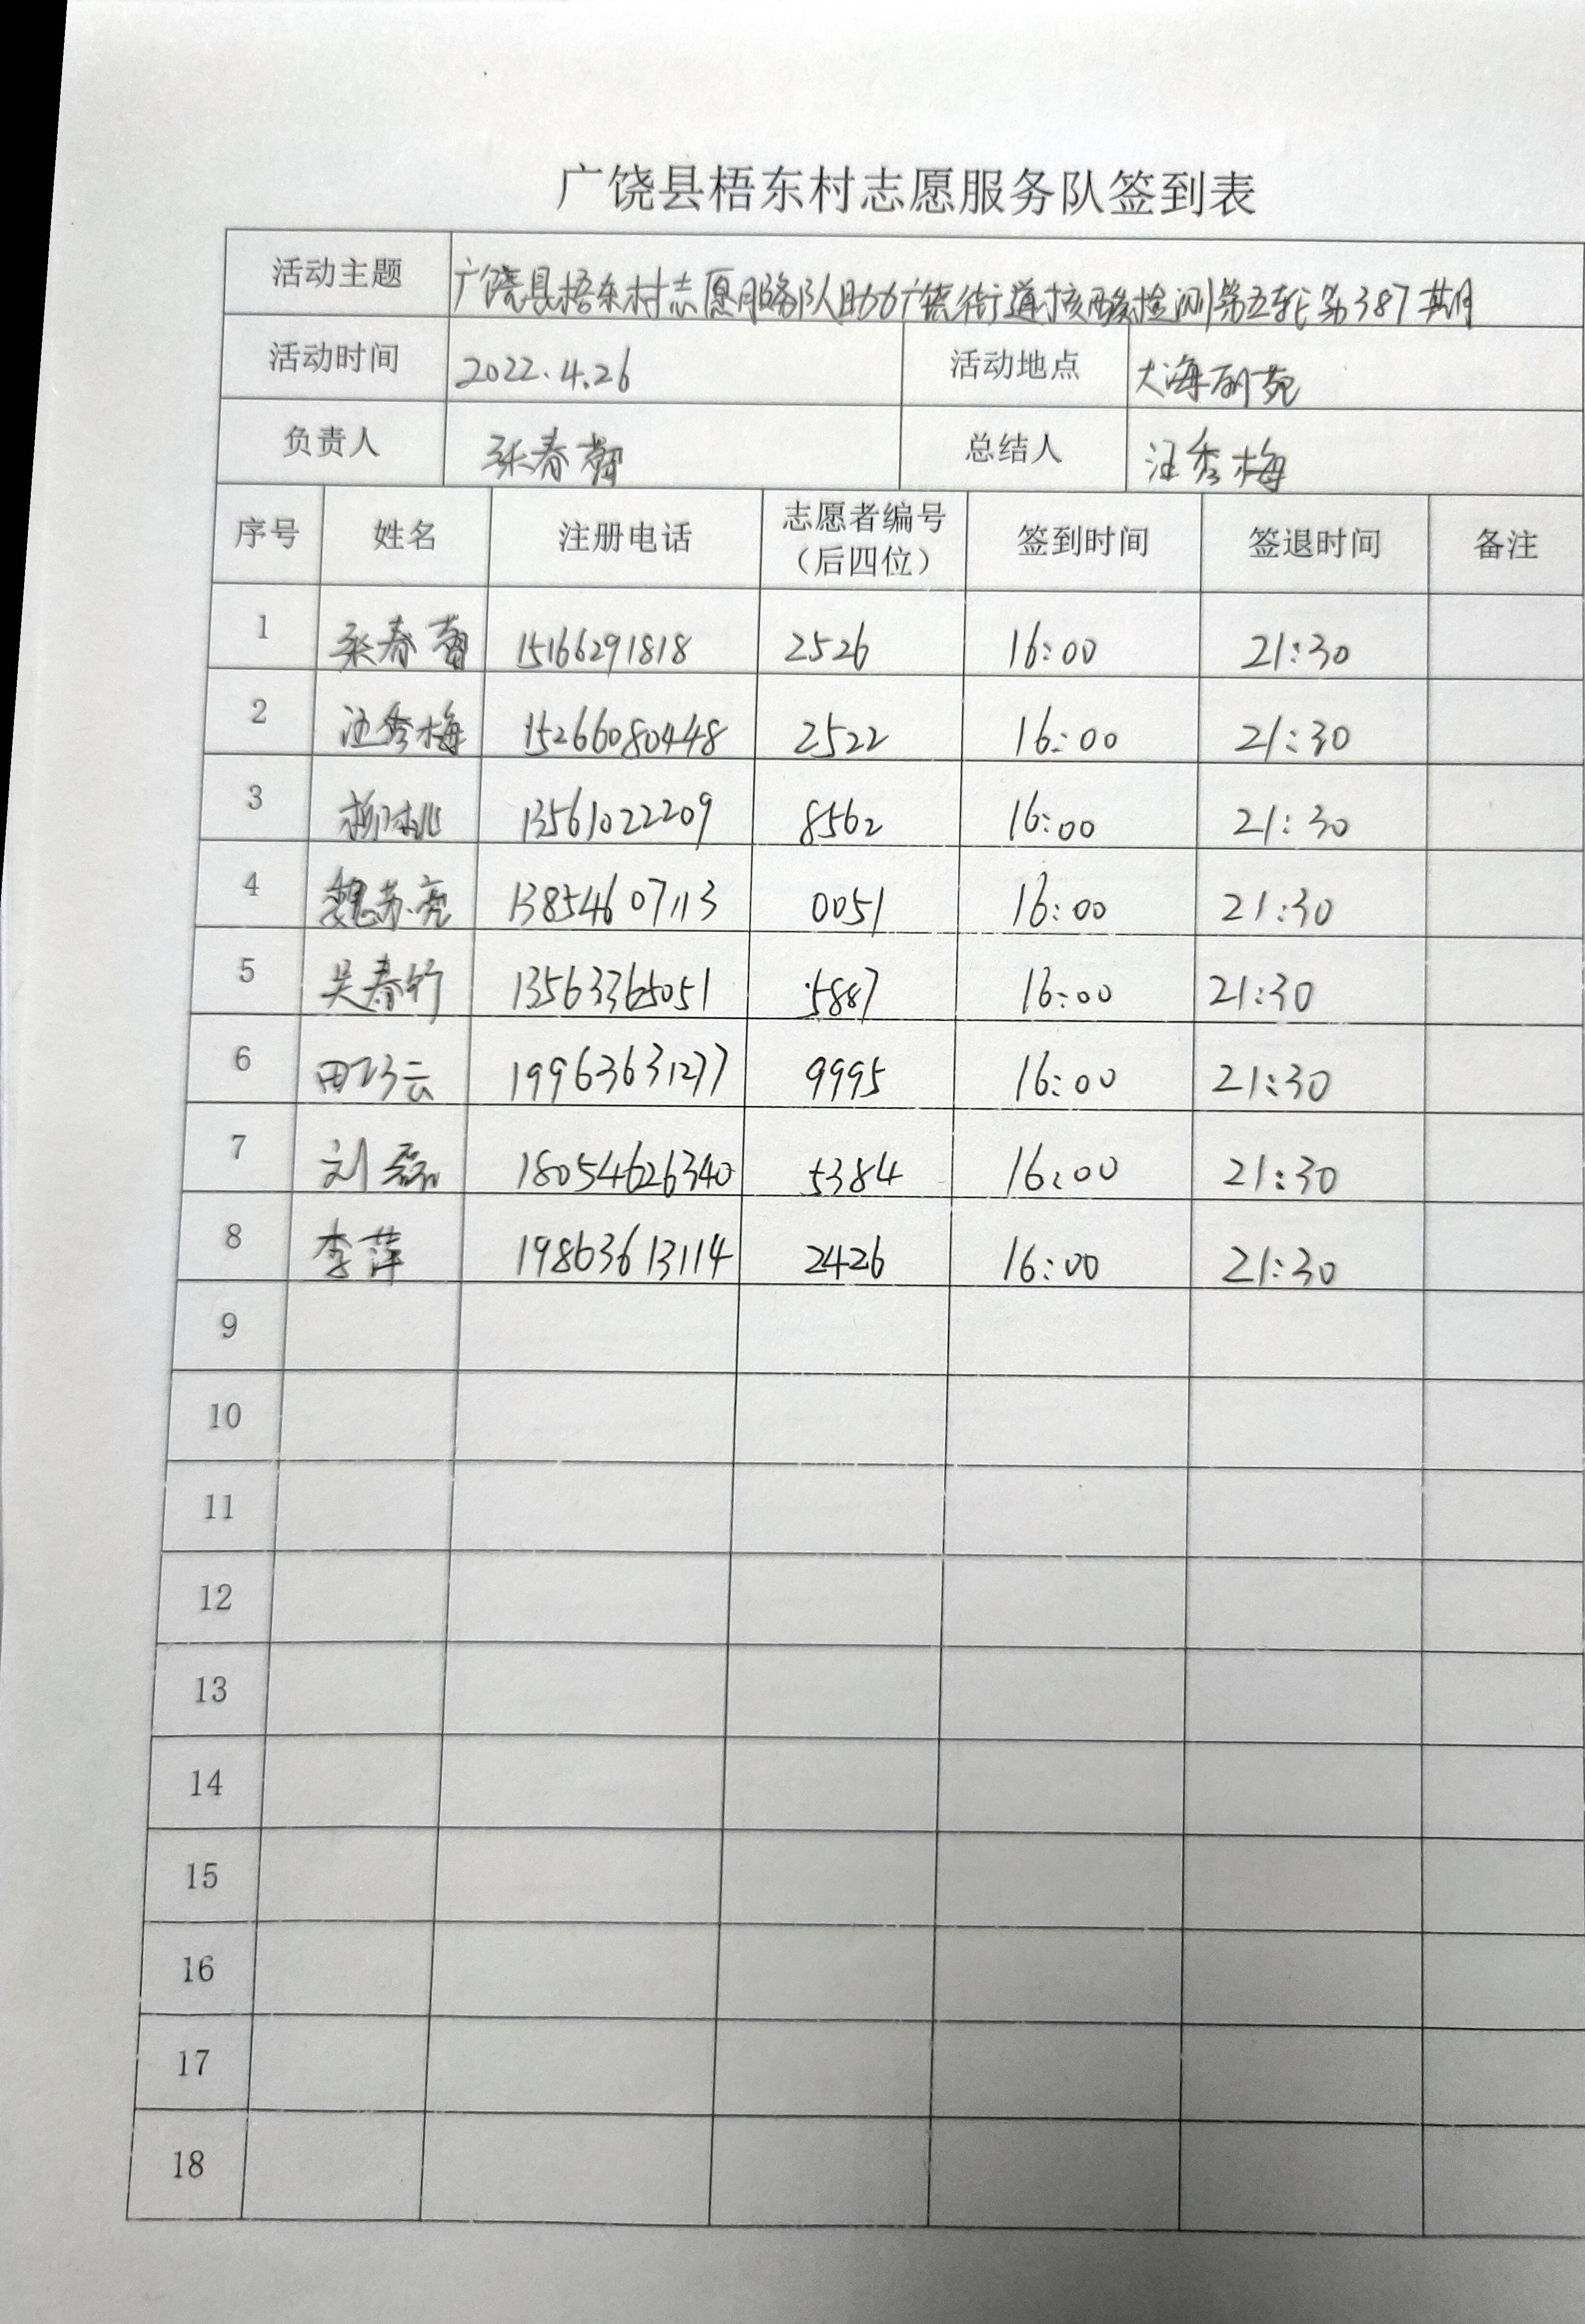 广饶县梧东村志愿服务队签到表
活动主题 广饶县梧东村志愿服务队助力广饶街道核酸检测第五轮第387期
活动时间 2022.4.26 活动地点 大海丽苑
负责人 张春 总结人 汪秀梅
序号 姓名 注册电话 志愿者编号（后四位） 签到时间 签退时间 备注
1 张春 15166291818 2526 16:00 21:30
2 汪秀梅 15266080448 2522 16:00 21:30
3 13561022209 8562 16:00 21:30
4 魏苏亮 13854607113 0051 16:00 21:30
5 吴春竹 13563365051 5887 16:00 21:30
6 田巧云 19963631277 9995 16:00 21:30
7 刘磊 18054626340 5384 16:00 21:30
8 李萍 19863613114 2426 16:00 21:30
9
10
11
12
13
14
15
16
17
18